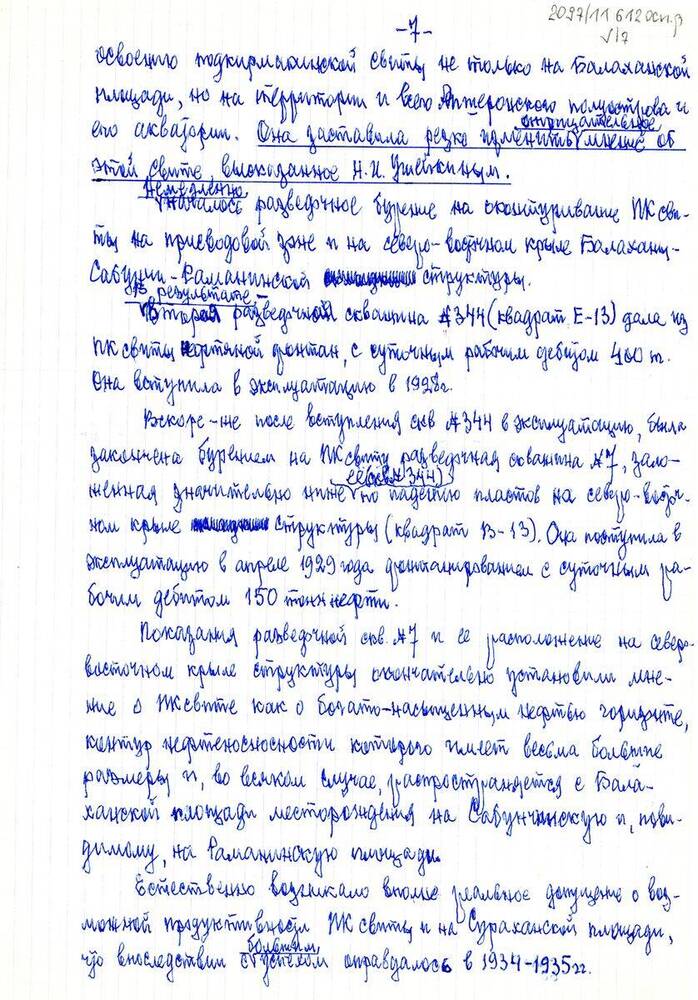 -7-
2097/11612осп.р
√17
освоению подкирмакинской свиты не только на Балаханской
площади, но на территории и всего Апшеронского полуострова и
его акватории. Она заставила резко изменить отрицательное мнение об
этой свите высказанное Н.И. Ушейкиным.
Немедленно началось разведочное бурение на оконтуривание ПК сви-
ты на присводовой зоне и на северо-восточном крыле Балаханы-
Сабунчи-Раманинской структуры.
В результате вторая разведочная скважина №344 (квадрат Е-13) дала из
ПК свиты нефтяной фонтан, с суточным рабочим дебитом 400 т.
Она вступила в эксплуатацию в 1928г.
Вскоре-же после вступления скв №344 в эксплуатацию, была
закончена бурением на ПК свиту разведочная скважина №7, зало-
женная значительно ниже её (скв №344) по падению пластов на северо-восточ-
ном крыле структуры (квадрат В-13). Она поступила в
эксплуатацию в апреле 1929 года фонтанированием с суточным ра-
бочим дебитом 150 тонн нефти.
Показания разведочной скв. №7 и ее расположение на северо-
восточном крыле структуры окончательно установили мне-
ние о ПК свите как о богато-насыщенным нефтью горизонте,
контур нефтеносности которого имеет весьма большие
размеры и, во всяком случае, распространяется с Бала-
ханской площади месторождения на Сабунчинскую и, пови-
димому, на Раманинскую площади.
Естественно возникало вполне реальное допущение о воз-
можной продуктивности ПК свиты и на Сураханской площади,
что впоследствии с большим успехом оправдалось в 1934-1935гг.